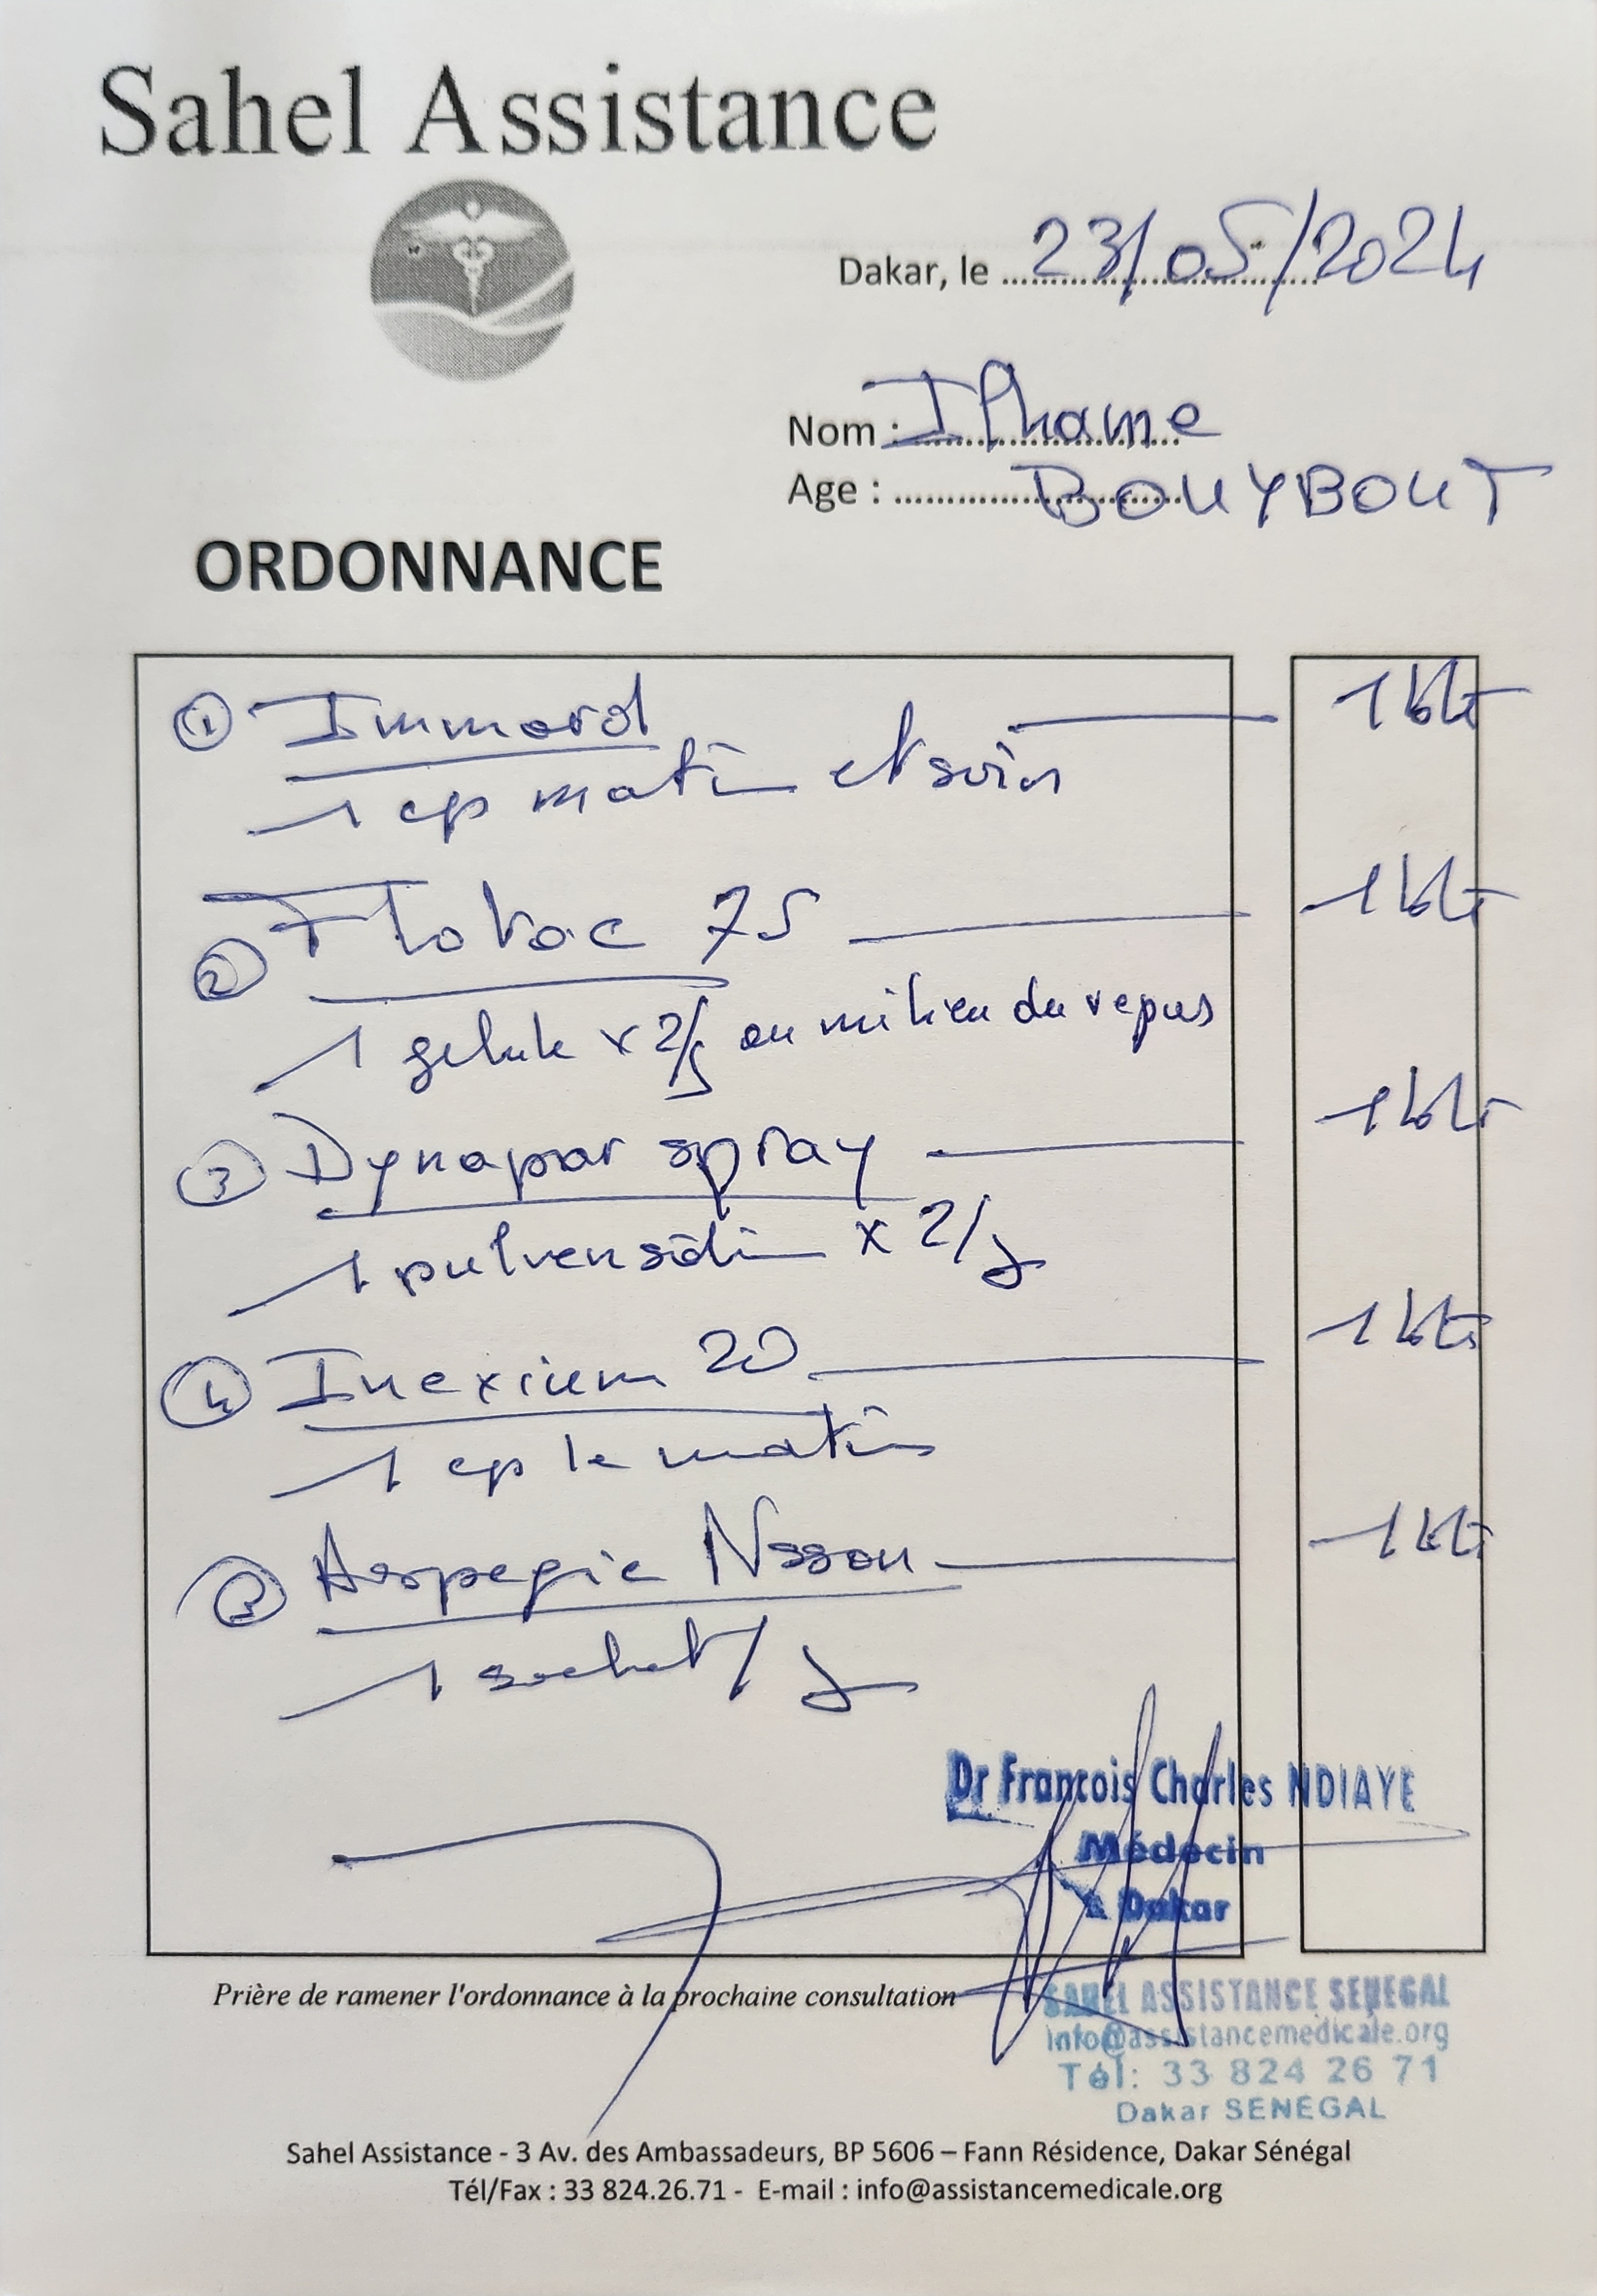 Sahel Assistance
Dakar, le 23/05/2024
Nom : Ilhame
Age : BOUYBOUT
ORDONNANCE
① Immorol 1 bte
1 cp matin et soir
② Flotac 75 1 bte
1 gelule x 2/j au milieu du repas
③ Dynapar spray 1 bte
1 pulverisation x 2/j
④ Inexium 20 1 bte
1 cp le matin
Aspegic Nsson 1 bte
1 sachet/j
Dr Francois Charles NDIAYE
Médecin
Dakar
Prière de ramener l'ordonnance à la prochaine consultation
SAHEL ASSISTANCE SENEGAL
info@assistancemedicale.org
Tél: 33 824 26 71
Dakar SENEGAL
Sahel Assistance - 3 Av. des Ambassadeurs, BP 5606 – Fann Résidence, Dakar Sénégal
Tél/Fax : 33 824.26.71 - E-mail : info@assistancemedicale.org